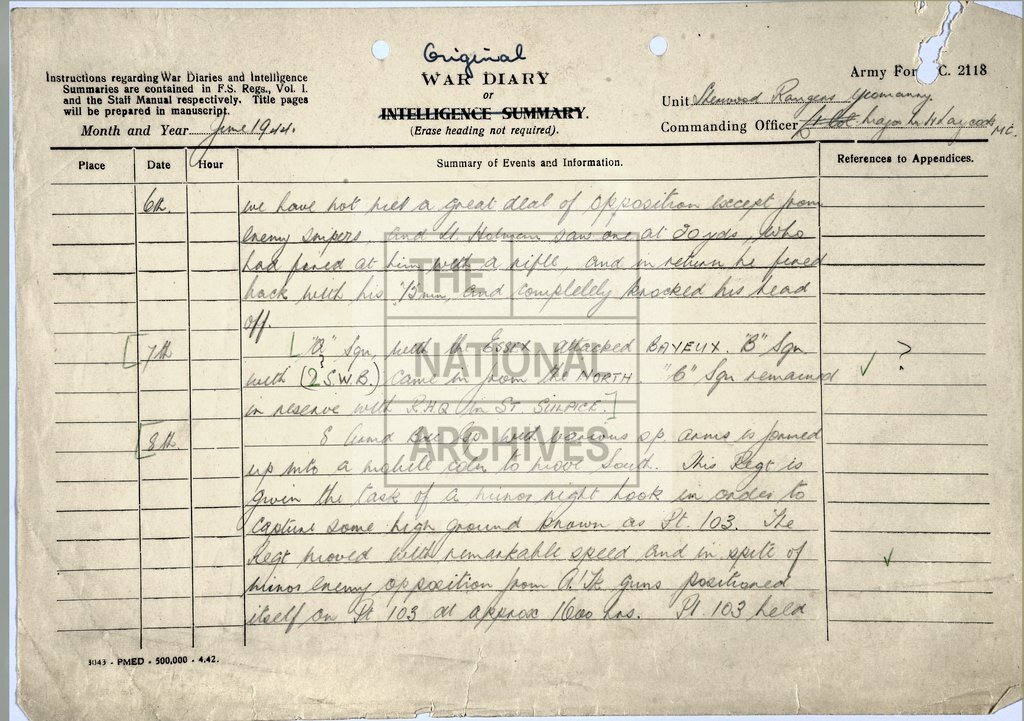 Original
WAR DIARY
or
INTELLIGENCE SUMMARY.
(Erase heading not required).
Instructions regarding War Diaries and Intelligence
Summaries are contained in F.S. Regs., Vol. I.
and the Staff Manual respectively. Title pages
will be prepared in manuscript.
Month and Year June 1944.
Army For C. 2118
Unit Sherwood Rangers Yeomanry.
Commanding Officer Lt Col. Major Laycock MC.
Place Date Hour Summary of Events and Information. References to Appendices.
6th. we have not met a great deal of opposition except from
enemy snipers, and Lt. Holman saw one at 20 yds, who
had fired at him with a rifle, and in return he fired
back with his 75mm and completely knocked his head
off.
[7th "A" Sqn, with the ESSEX attacked BAYEUX. "B" Sqn ?
with (2 S.W.B.) came in from the NORTH. "C" Sqn remained
in reserve with R.H.Q in ST. SULPICE.]
[8th. 8 Armd Bde Gp with various sp. arms is formed
up into a mobile coln to move South. This Regt is
given the task of a minor right hook in order to
capture some high ground known as Pt. 103. The
Regt moved with remarkable speed and in spite of
minor enemy opposition from A/Tk guns positioned
itself on Pt 103 at approx 1600 hrs. Pt. 103 held
3043 - PMED - 500,000 - 4.42.
THE
NATIONAL
ARCHIVES